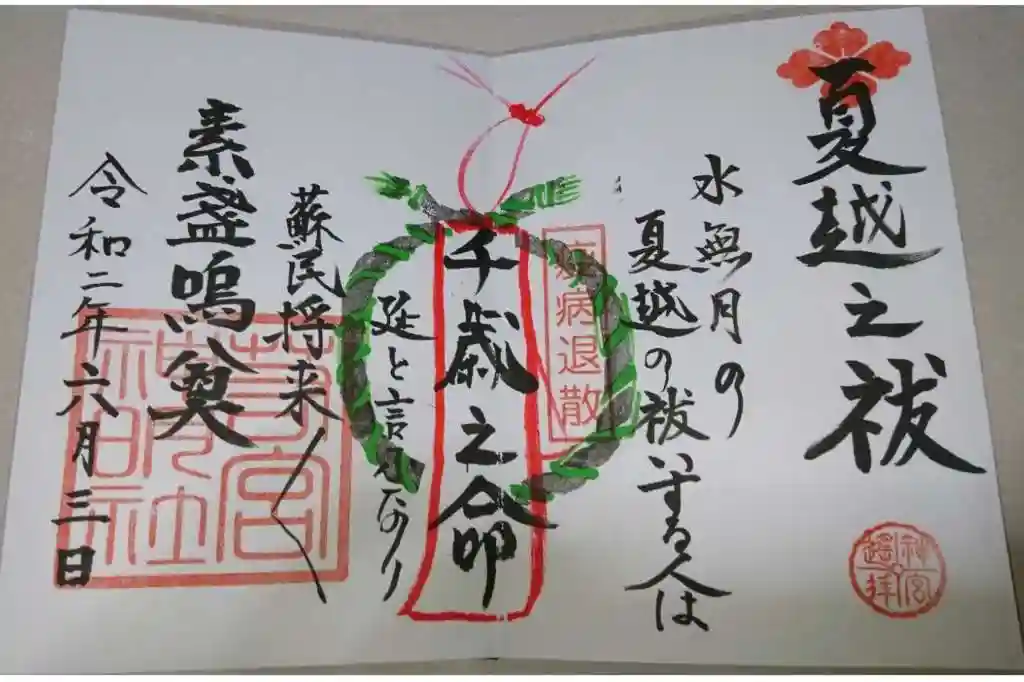 夏越之祓
水無月の
夏越の祓いする人は
千歳之命
延と言ふなり
蘇民将来〱
素盞嗚尊
令和二年六月三日
疫病退散
神宮
遥拝